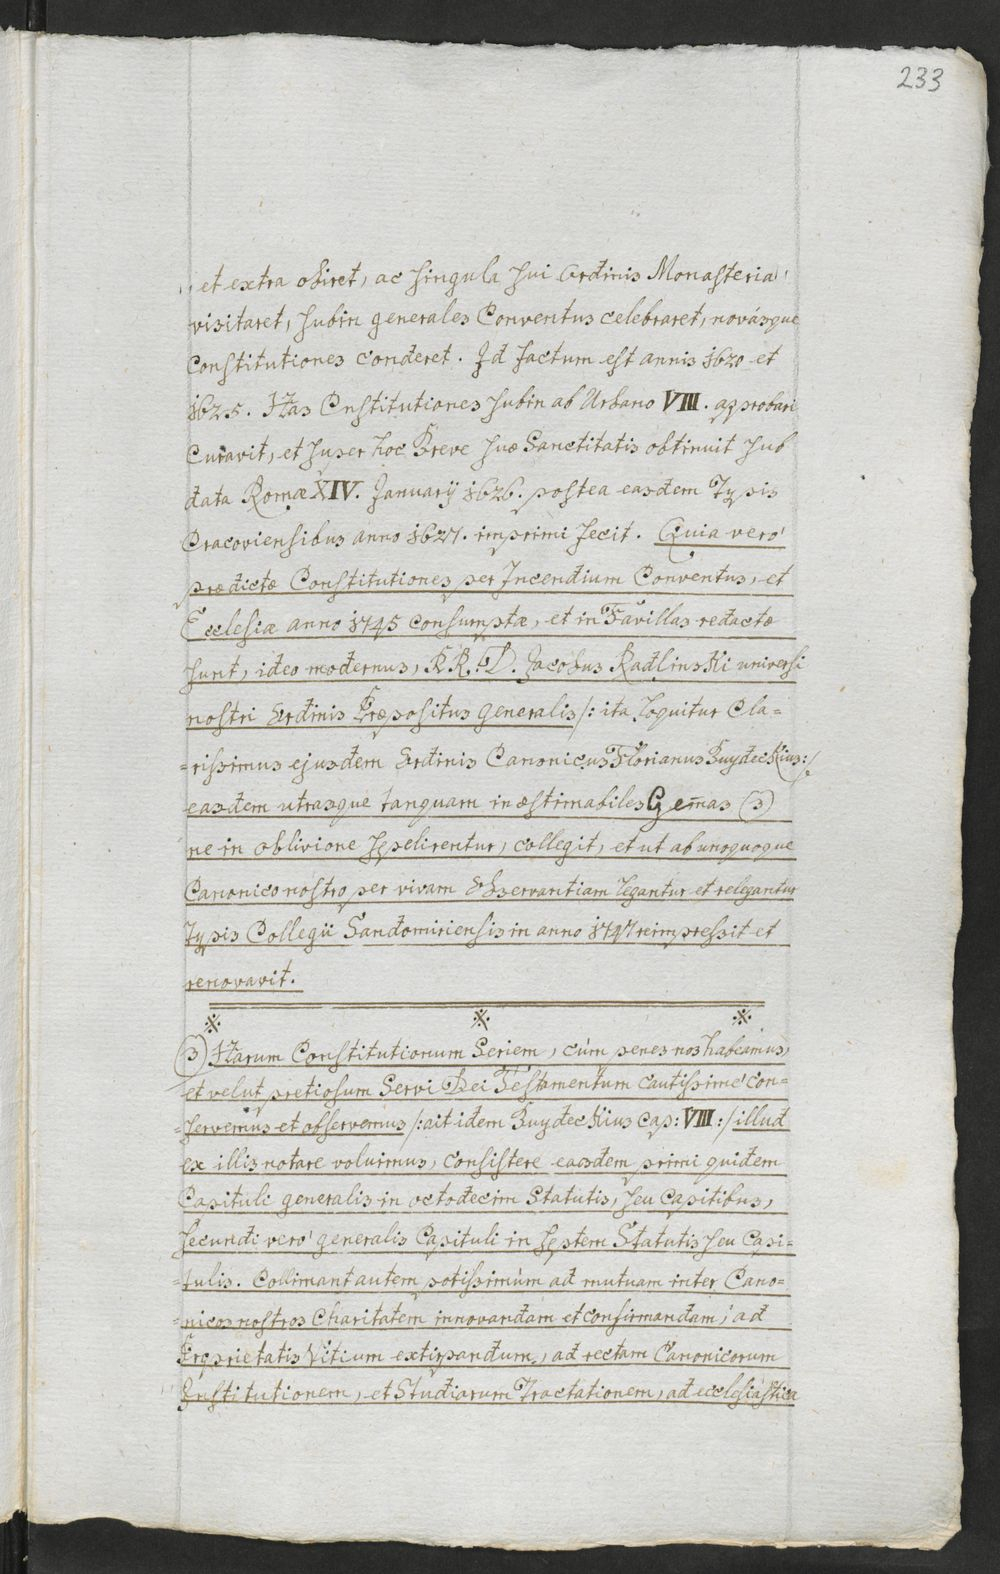 233
et extra obiret, ac singula sui Ordinis Monasteria
visitaret, subin generales Conventus celebraret, novásque
Constitutiones conderet. Id factum est annis 1620 et
1625. Has Cnstitutiones subin ab Urbano VIII. approbari
Curavit, et super hoc Breve suæ Sanctitatis obtinuit sub
data Romæ XIV. Januarij 1626. postea easdem Typis
Cracoviensibus anno 1627. imprimi fecit. Quia veró
prædictæ Constitutiones per Incendium Conventus, et
Ecclesiæ anno 1745 consumptæ, et in Favillas redactæ
sunt, ideo modernus, RR. D. Jacobus Radlinski universi
nostri Ordinis Præpositus generalis /: ita loquitur Cla=
=rissimus ejusdem Ordinis Canonicus Florianus Buydeckius: /
easdem utrasque tanquam inæstimabiles Gem̃as (3)
ne in oblivione sepelirentur, collegit, et ut ab unoquoque
Canonico nostro per vivam Observantiam legantur et relegantur
Typis Collegii Sandomiriensis in anno 1747 reimpressit et
renovavit.
(3) Harum Constitutionum Seriem, cúm penes nos habeamus,
et velut pretiosum Servi Dei Testamentum cautissimé con=
=servemus et observemus /: ait idem Buydeckius Cap: VIII :/ illud
ex illis notare voluimus, consistere easdem primi quidem
Capituli generalis in octodecim Statutis, seu Capitibus,
secundi veró generalis Capituli in septem Statutis seu Capi=
=tulis. Collimant autem potissimúm ad mutuam inter Cano=
=nicos nostros Charitatem innovandam et confirmandam, ad
Proprietatis Vitium extirpandum, ad rectam Canonicorum
Institutionem, et Studiorum Tractationem, ad ecclesiástica